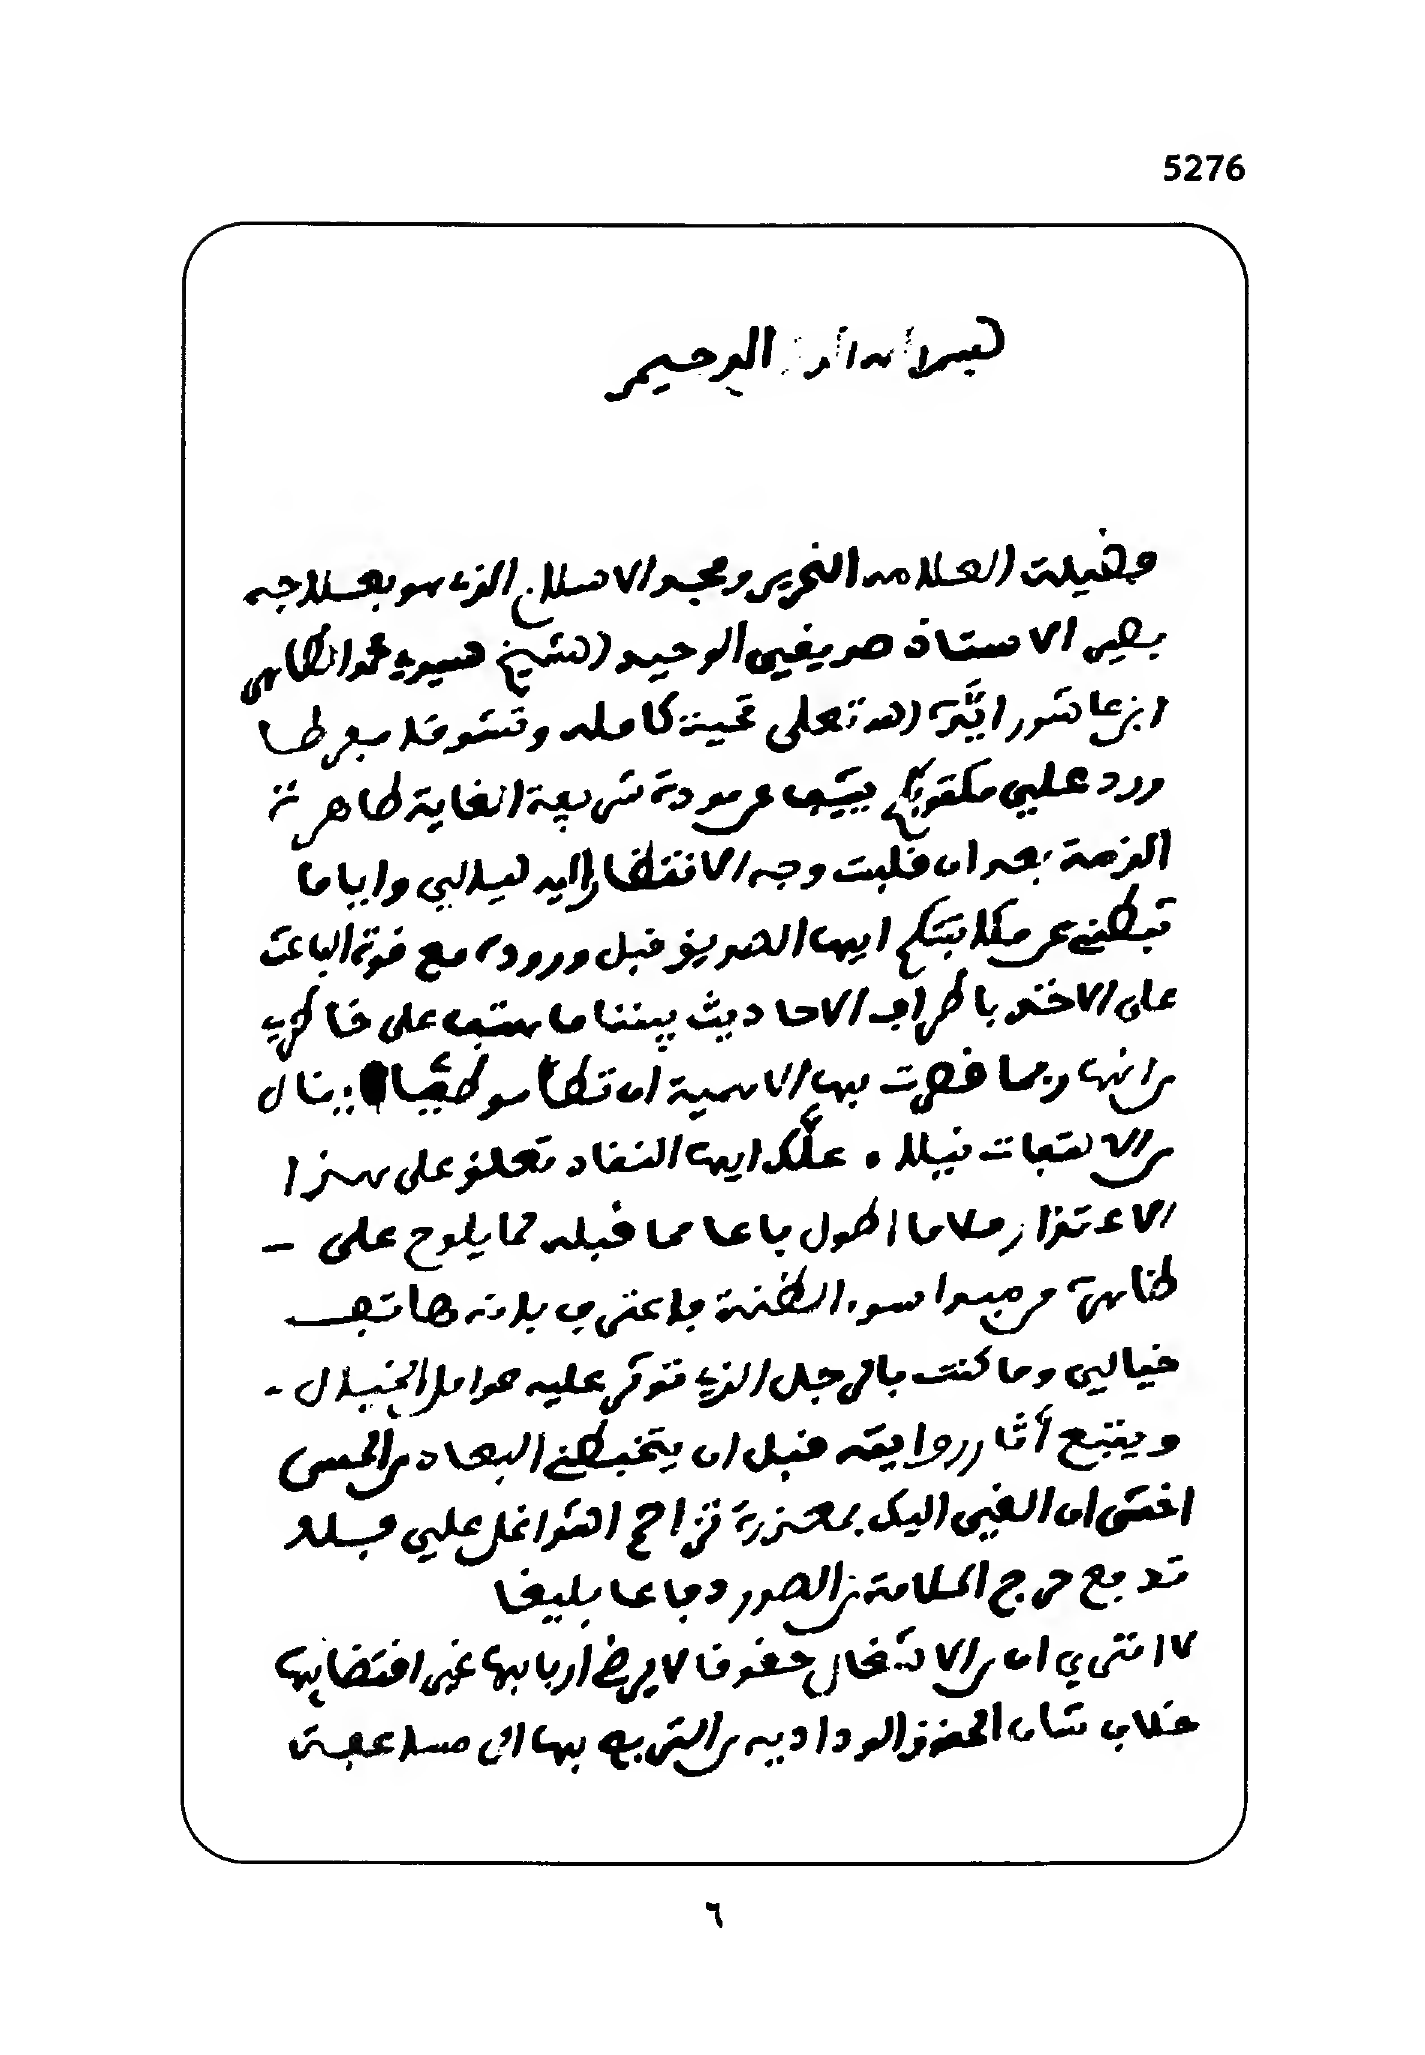 5276
بسم الله الرحيم
فضيلة العلامة النحرير ومجد الاسلام الذي هو بعلاجه
بصير الاستاذ صديقي الوحيد الشيخ سيدي محمد الطاهر
ابن عاشور ايده الله تعلى تحية كاملة وتشوقا
ورد علي مكتوبكم ينبئ عن مودة شريعة الغاية طاهرة
النزعة بعد ان قلبت وجه الانتظار اليه ليالي واياما
تبطئني عن مكاتبتكم ايها الصديق قبل وروده مع قوة الباعث
على الاخذ باطراف الاحاديث بيننا ما على خاطري
من انها ربما قصرت بها الامية ان تطأ موطئا ينال
من الالتفات نيلا. علك ايها النقاد تعلق على هذا
الاعتذار ملاما اطول باعا مما قبله لما يلوح على -
ظاهره من مبدا سوء الظنة فاعترف بانه هاتف
خيالي وما كنت بالرجل الذي تتوكر عليه عوامل الخيال -
ويتبع آثار روايته قبل ان يتخبطني البعاد من المس
اخشى ان القي اليك بمعذرة تزاحم الشواغل علي فلا
تدفع حرج الملامة من الصدور دفاعا بليغا
لا امتري ان من الاشغال حقوقا لا يرضي اربابها غير اقتضايها
خلاف شان الحقوق الودادية من التربص بها الى مساعفة
٦